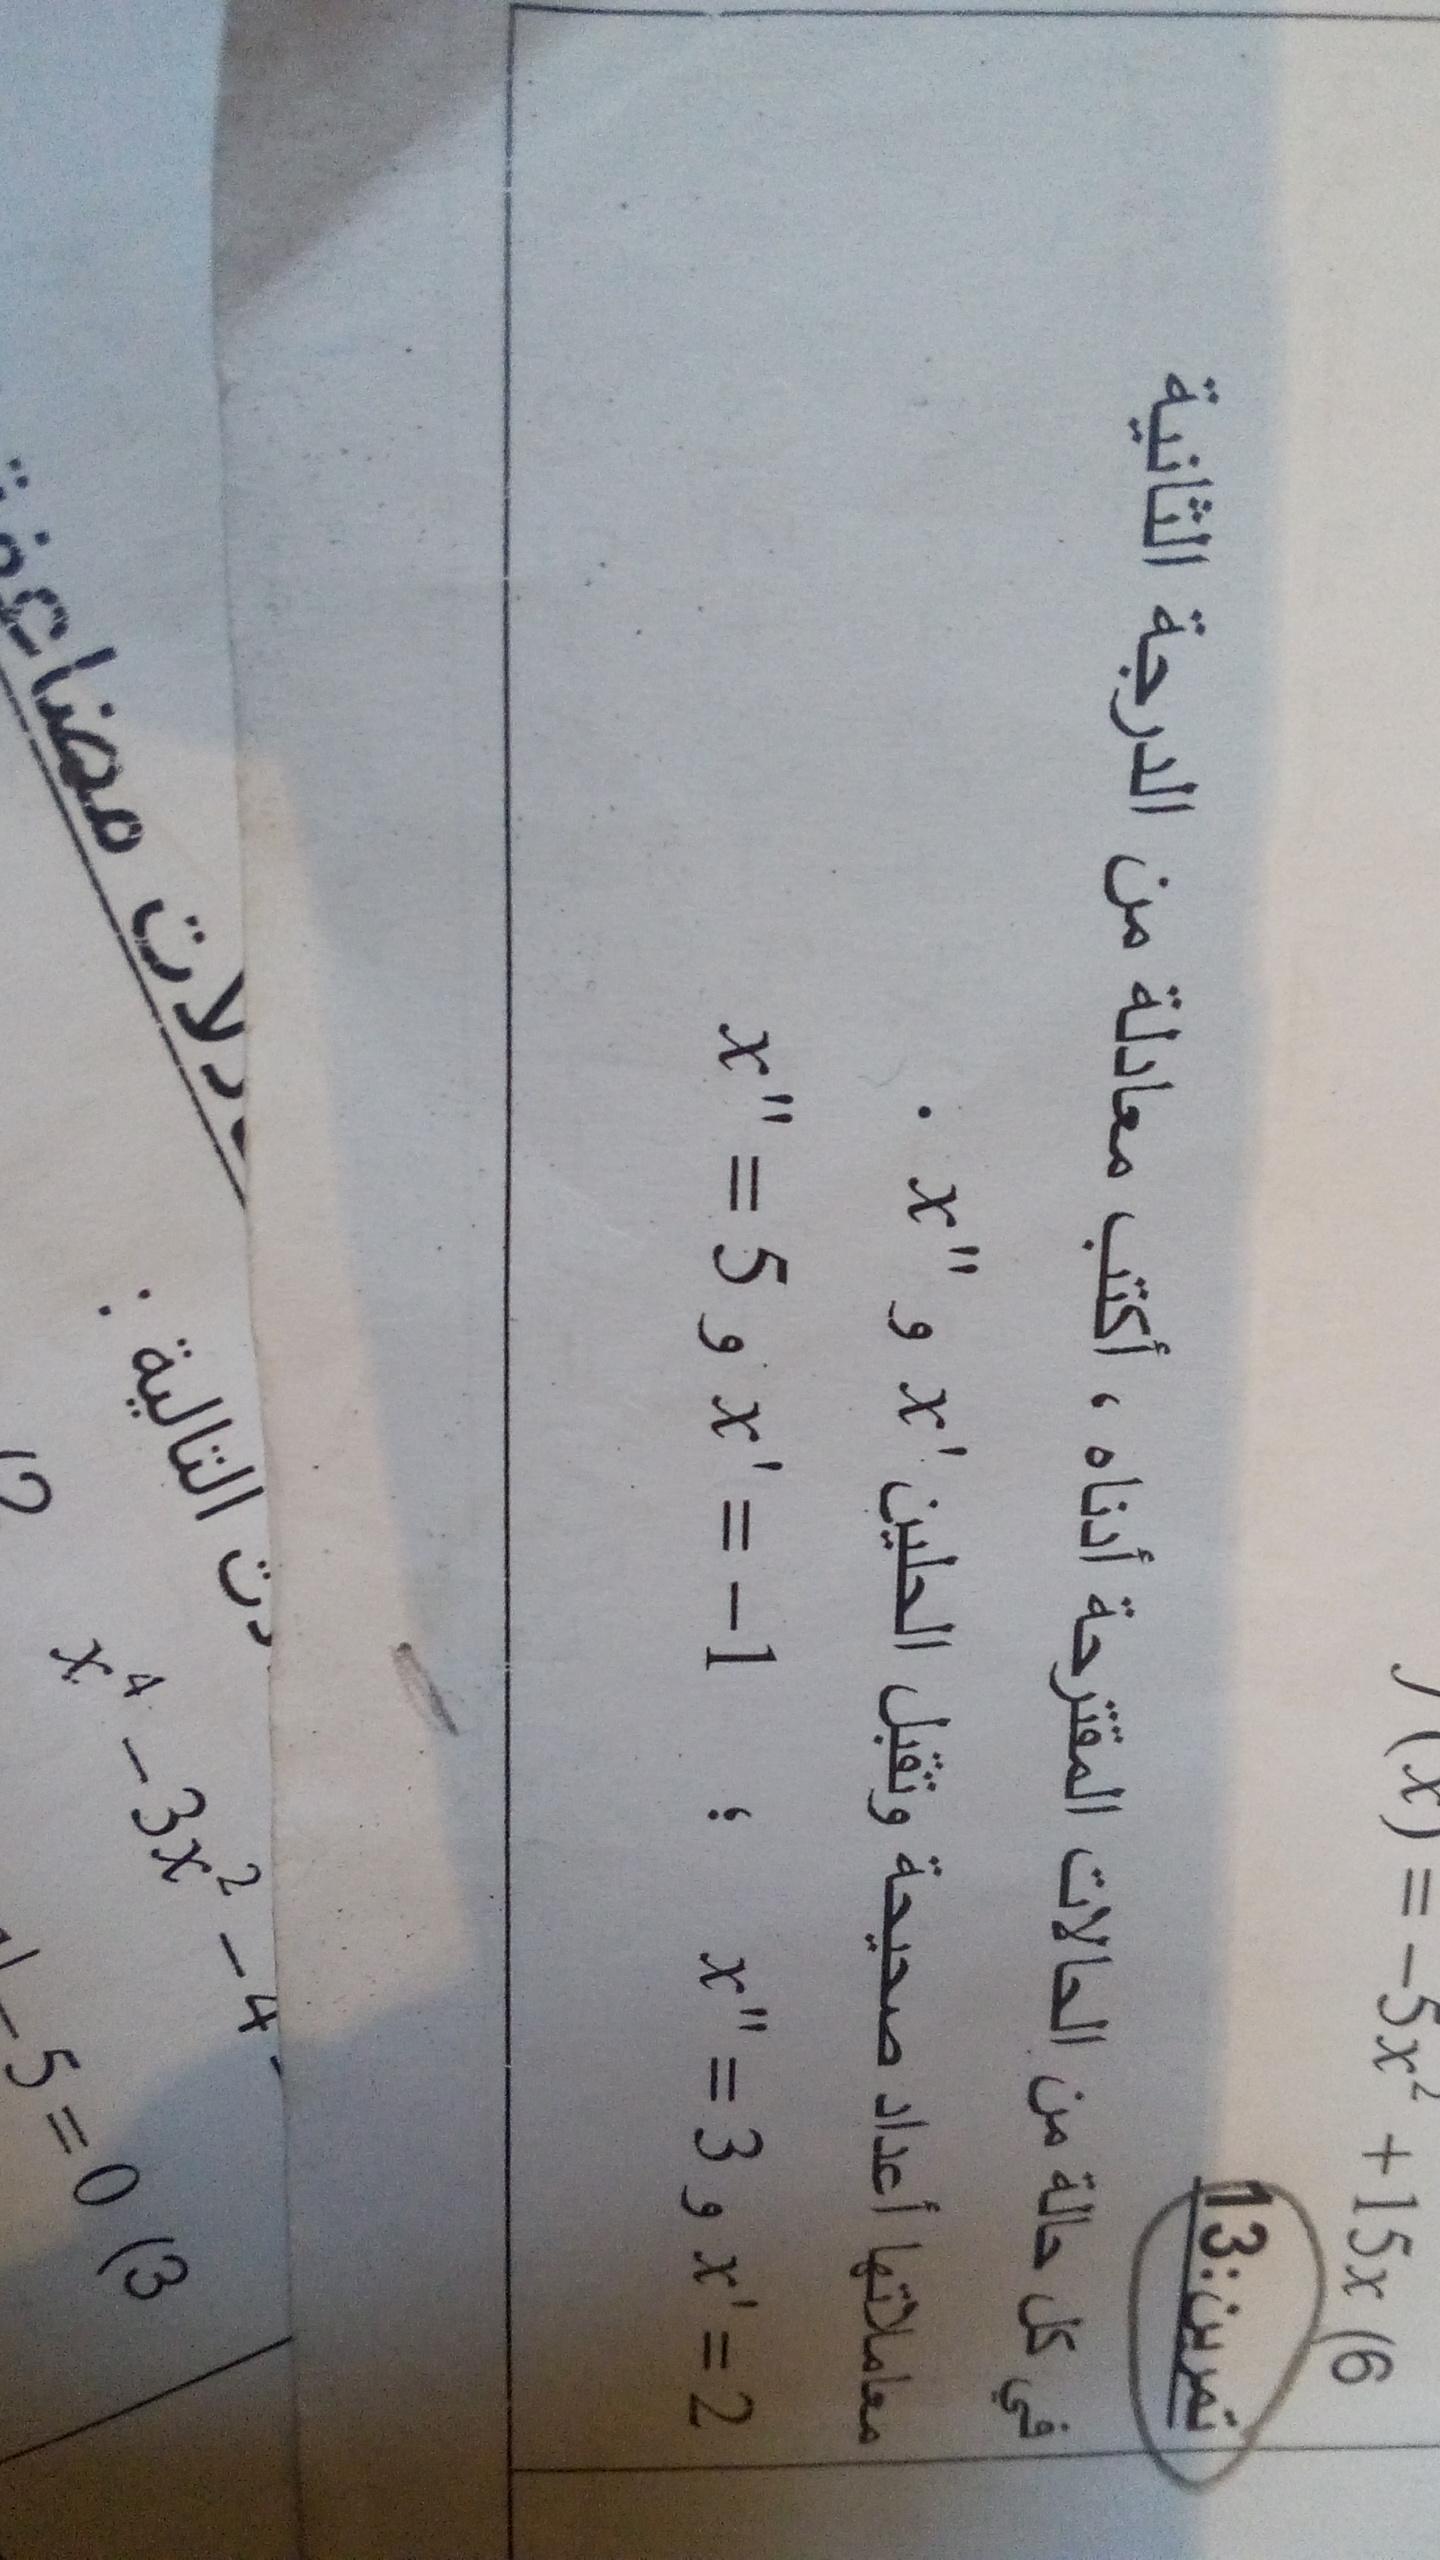 f(x) = −5x² + 15x (6
تمرين13:
في كل حالة من الحالات المقترحة أدناه ، أكتب معادلة من الدرجة الثانية
معاملاتها أعداد صحيحة وتقبل الحلين x' و x'' .
x' = 2 و x'' = 3 ؛ x' = −1 و x'' = 5
التالية :
x⁴ − 3x² − 4
− 5 = 0 (3